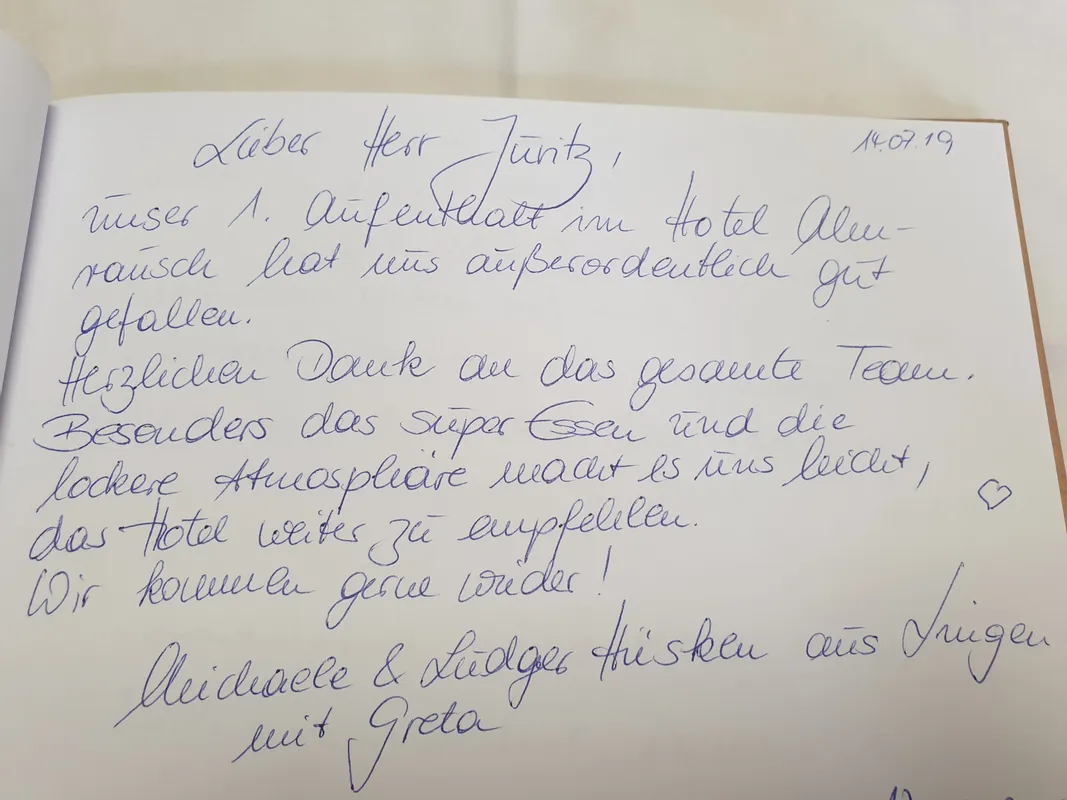 Lieber Herr Juritz,
14.07.19
unser 1. Aufenthalt im Hotel Alm-
rausch hat uns außerordentlich gut
gefallen.
Herzlichen Dank an das gesamte Team.
Besonders das super Essen und die
lockere Atmosphäre macht es uns leicht,
das Hotel weiter zu empfehlen.
Wir kommen gerne wieder!
Michaele & Ludger Hüsken aus Lingen
mit Greta